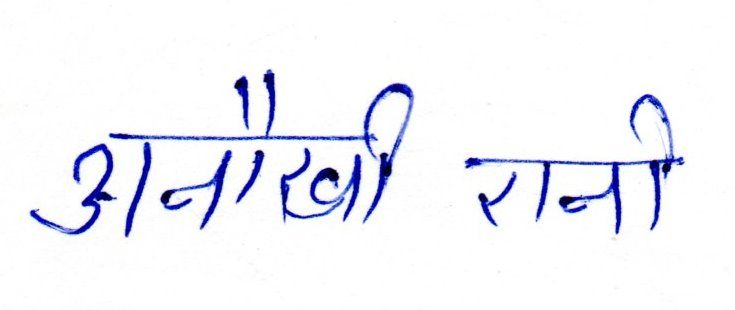 अनौखी रानी